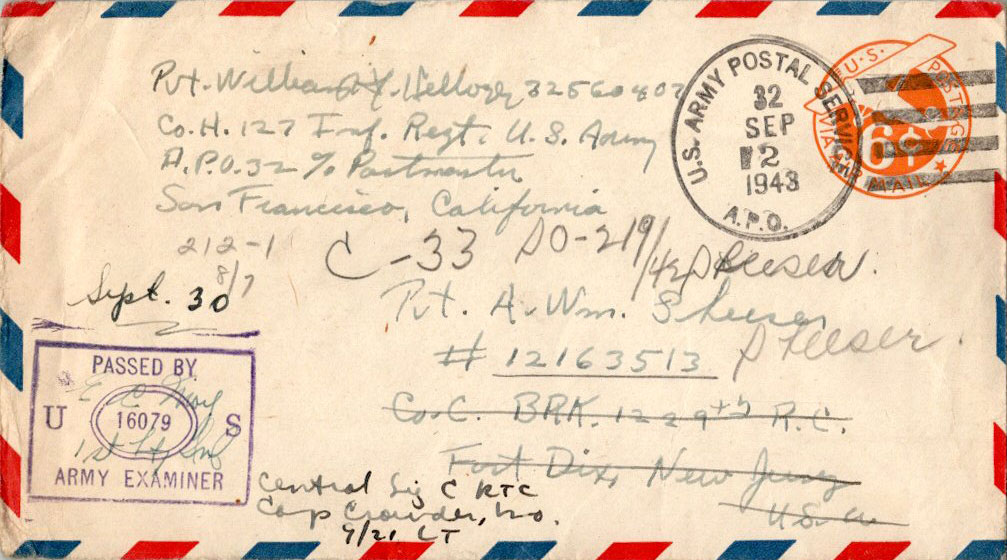 Pvt. William Y. Kellogg 32560402
Co. H. 127 Inf. Regt. U. S. Army
A.P.O. 32 % Postmaster
San Francisco, California
U.S. ARMY POSTAL SERVICE
32
SEP
2
1943
A.P.O.
U.S. POSTAGE
VIA AIR MAIL
6¢
212-1
8/7
C-33
DO-219/42
Sheeser.
Sept. 30
Pvt. A. Wm. Sheeser
Sheeser.
# 12163513
Co. C. BRK. 1229th R.C.
Fort Dix, New Jersey
U.S.A.
PASSED BY
U 16079 S
ARMY EXAMINER
1st Lt Inf
Central Sig C RTC
Camp Crowder, Mo.
9/21 LT